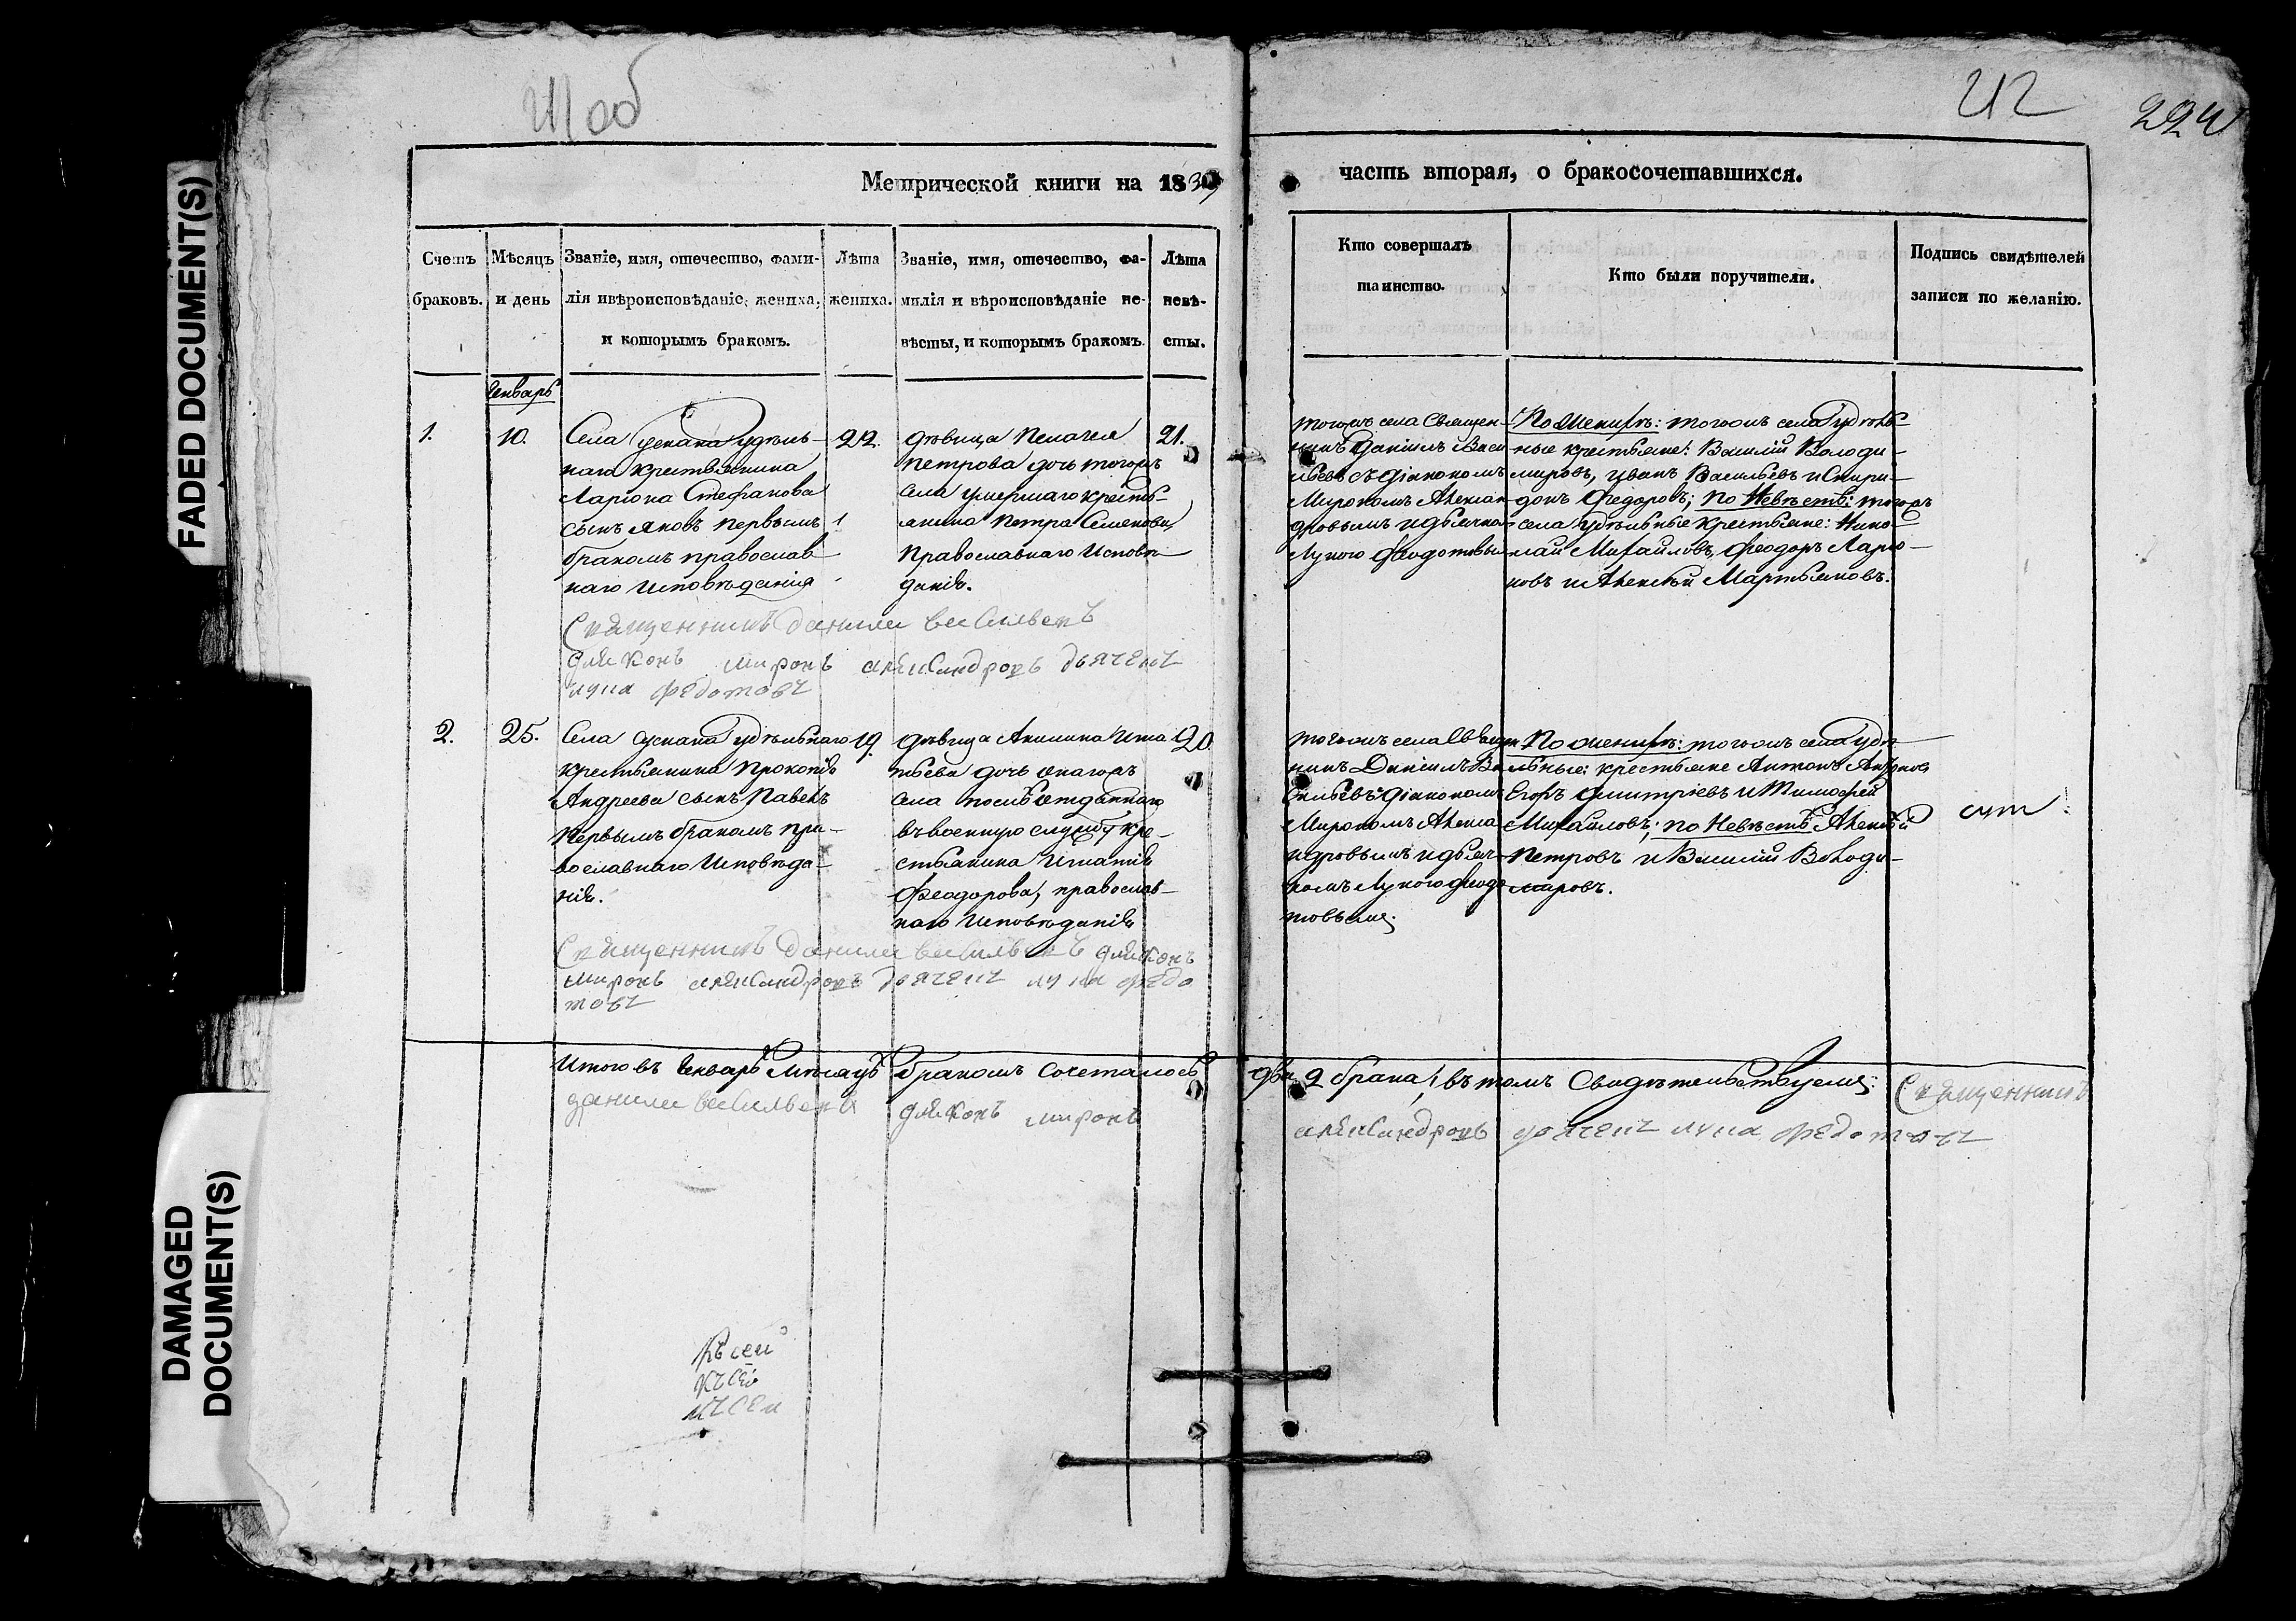 FADED DOCUMENT(S)
DAMAGED
DOCUMENT(S)
41 об
42
224
Метрической книги на 1839
часть вторая, о бракосочетавшихся.
Счетъ
браковъ.
Мѣсяцъ
и день
Званіе, имя, отечество, фами-
лія ивѣроисповѣданіе, жениха,
и которымъ бракомъ.
Лѣта
жениха.
Званіе, имя, отечество, фа-
милія и вѣроисповѣданіе не-
вѣсты, и которымъ бракомъ.
Лѣта
невѣ-
сты.
Кто совершалъ
таинство.
Кто были поручители.
Подпись свидѣтелей
записи по желанію.
Генварь
1.
10.
Села Ускана удѣль-
наго крестьянина
Ларіона Стефанова
сынъ Яковъ первымъ
бракомъ православ
наго исповѣданія
22.
дѣвица Пелагея
Петрова дочь тогожъ
села умершаго кресть-
янина Петра Семенова
Православнаго Исповѣ
данія.
21.
тогожъ села Священ-
никъ Даніилъ Васи
льевъ съ діакономъ
Мирономъ Алексан
дровымъ и дьячком
Лукою Феодотовым
По Женихѣ: тогожъ села Удѣль-
ные крестьяне: Василій Володи-
мировъ, Иванъ Васильевъ и Спири-
донъ Федоровъ; по Невѣстѣ: тогожъ
села удѣльные крестьяне: Нико-
лай Михайловъ, Феодоръ Ларіо-
новъ и Алексѣй Мартьяновъ.
Священникъ данила васильевъ
дияконъ миронъ александровъ дьячекъ
лука федотовъ
2.
25.
Села Ускана Удѣльнаго
крестьянина Прокопія
Андреева сынъ Павелъ
первымъ бракомъ пра-
вославнаго Исповѣда-
нія.
19.
дѣвица Акилина Игна
тьева дочь онагожъ
села отданнаго
въ военную службу кре-
стьянина Игнатія
Феодорова, православ-
наго Исповѣданія
20
тогожъ села Священ
никъ Даніилъ Ва
сильевъ діакономъ
Мирономъ Алекса
ндровымъ и дьяч-
комъ Лукою Феодо
товымъ.
По женихѣ: тогожъ села Удѣ-
льные: крестьяне Антонъ
Егоръ Дмитріевъ и Тимофей
Михайловъ; по Невѣстѣ Алексѣй
Петровъ и Василій Володи-
мировъ.
Священникъ данила васильевъ дияконъ
миронъ александровъ дьячекъ лука федо
товъ
Итого въ Генварѣ Мѣсяцѣ бракомъ сочеталось два 2 брака; въ томъ Свидѣтельствуемъ: Священникъ
данила васильевъ дияконъ миронъ александровъ дьячекъ лука федотовъ
Къ сей
къ сей
къ сей